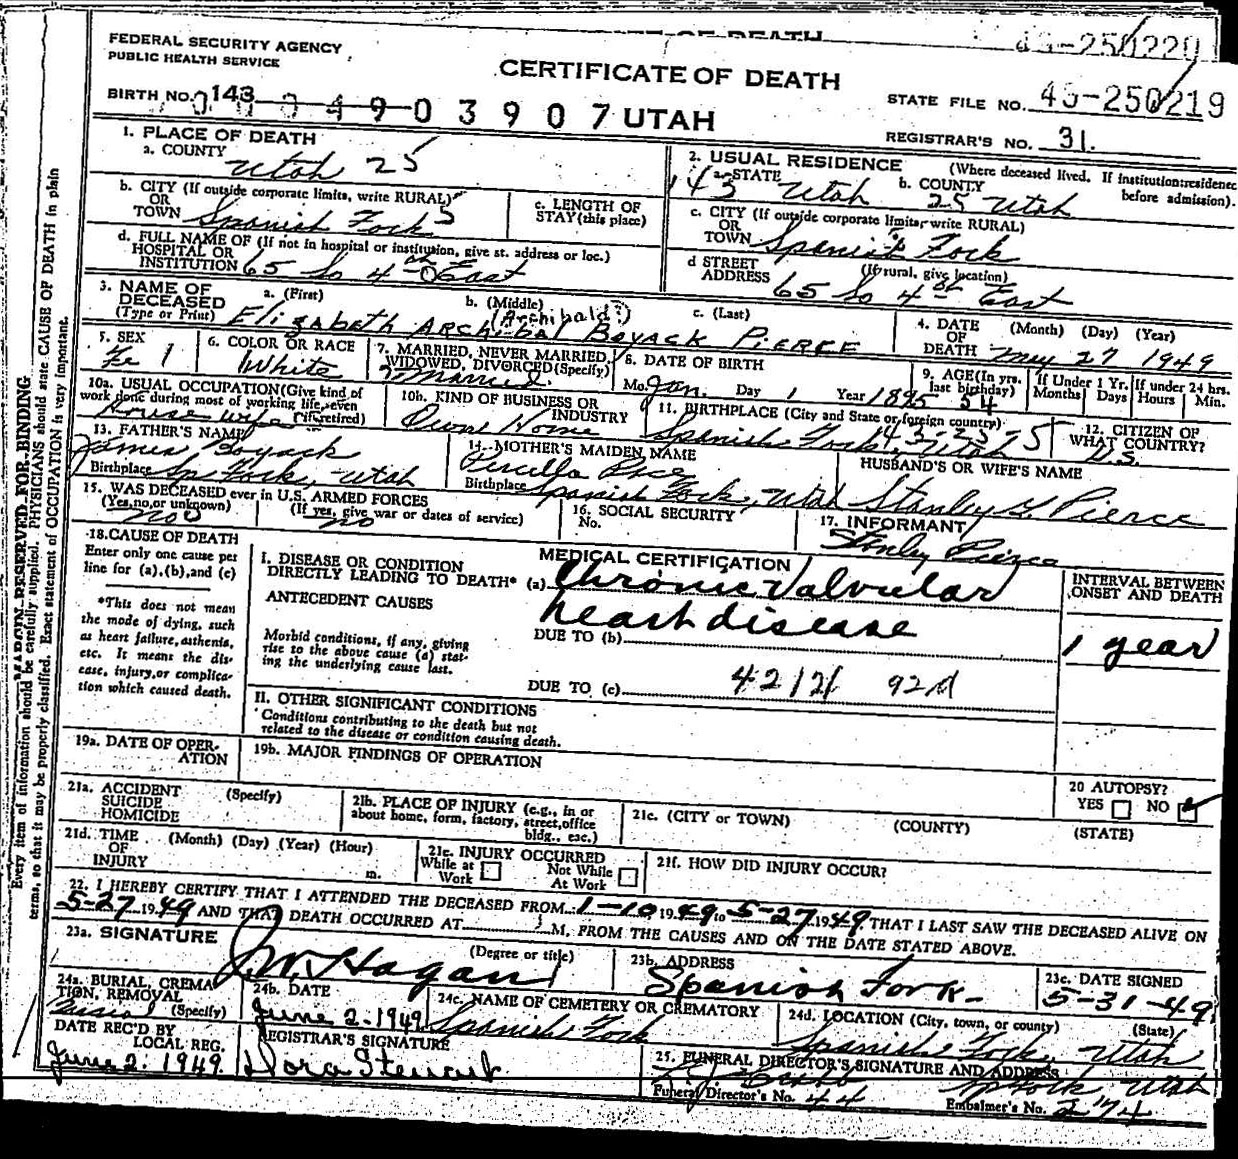 49-250220
FEDERAL SECURITY AGENCY
PUBLIC HEALTH SERVICE
CERTIFICATE OF DEATH
BIRTH NO. 143
4903907 UTAH
STATE FILE NO. 49-250219
REGISTRAR'S NO. 31.
1. PLACE OF DEATH
a. COUNTY Utah 25
2. USUAL RESIDENCE (Where deceased lived. If institution: residence before admission).
a. STATE 143 Utah b. COUNTY 25 Utah
b. CITY (If outside corporate limits, write RURAL) OR TOWN Spanish Fork 5
c. LENGTH OF STAY (this place)
c. CITY (If outside corporate limits, write RURAL) OR TOWN Spanish Fork
d. FULL NAME OF (If not in hospital or institution, give st. address or loc.) HOSPITAL OR INSTITUTION 65 So 4th East
d STREET ADDRESS (If rural, give location) 65 So 4th East
3. NAME OF DECEASED (Type or Print)
a. (First) b. (Middle) c. (Last)
(Archibald?)
Elizabeth Archibal Boyack Pierce
4. DATE OF DEATH (Month) (Day) (Year) May 27 1949
5. SEX Fe 1
6. COLOR OR RACE White
7. MARRIED, NEVER MARRIED, WIDOWED, DIVORCED (Specify) Married
8. DATE OF BIRTH Mo. Jan. Day 1 Year 1895
9. AGE (In yrs. last birthday) 54
If Under 1 Yr. Months Days
If under 24 hrs. Hours Min.
10a. USUAL OCCUPATION (Give kind of work done during most of working life, even if retired) Housewife
10b. KIND OF BUSINESS OR INDUSTRY Own Home
11. BIRTHPLACE (City and State or foreign country) Spanish Fork, Utah 143-25-5
12. CITIZEN OF WHAT COUNTRY? U.S.
13. FATHER'S NAME James Boyack
Birthplace Sp Fork, Utah
14. MOTHER'S MAIDEN NAME
Birthplace Spanish Fork, Utah
HUSBAND'S OR WIFE'S NAME Stanley G. Pierce
15. WAS DECEASED ever in U.S. ARMED FORCES
(Yes, no, or unknown) no
(If yes, give war or dates of service) no
16. SOCIAL SECURITY No.
17. INFORMANT Stanley Pierce
18. CAUSE OF DEATH
Enter only one cause per line for (a), (b), and (c)
*This does not mean the mode of dying, such as heart failure, asthenia, etc. It means the disease, injury, or complication which caused death.
MEDICAL CERTIFICATION
I. DISEASE OR CONDITION DIRECTLY LEADING TO DEATH* (a) Chronic Valvular
heart disease
ANTECEDENT CAUSES
Morbid conditions, if any, giving rise to the above cause (a) stating the underlying cause last.
DUE TO (b)
DUE TO (c) 42121 92d
INTERVAL BETWEEN ONSET AND DEATH
1 year
II. OTHER SIGNIFICANT CONDITIONS
Conditions contributing to the death but not related to the disease or condition causing death.
19a. DATE OF OPERATION
19b. MAJOR FINDINGS OF OPERATION
20 AUTOPSY?
YES NO
21a. ACCIDENT SUICIDE HOMICIDE (Specify)
21b. PLACE OF INJURY (e.g., in or about home, form, factory, street, office bldg., esc.)
21c. (CITY or TOWN) (COUNTY) (STATE)
21d. TIME OF INJURY (Month) (Day) (Year) (Hour) m.
21e. INJURY OCCURRED
While at Work Not While At Work
21f. HOW DID INJURY OCCUR?
22. I HEREBY CERTIFY THAT I ATTENDED THE DECEASED FROM 1-10 1949 to 5-27 1949 THAT I LAST SAW THE DECEASED ALIVE ON
5-27 1949 AND THAT DEATH OCCURRED AT M. FROM THE CAUSES AND ON THE DATE STATED ABOVE.
23a. SIGNATURE J.W. Hagan (Degree or title)
23b. ADDRESS Spanish Fork
23c. DATE SIGNED 5-31-49
24a. BURIAL, CREMATION, REMOVAL (Specify) Burial
24b. DATE June 2-1949
24c. NAME OF CEMETERY OR CREMATORY Spanish Fork
24d. LOCATION (City, town, or county) (State) Spanish Fork, Utah
DATE REC'D BY LOCAL REG. June 2. 1949
REGISTRAR'S SIGNATURE Dora Stewart
25. FUNERAL DIRECTOR'S SIGNATURE AND ADDRESS
Sp Fork Utah
Funeral Director's No. 44
Embalmer's No. 274
MARGIN RESERVED FOR BINDING
Every item of information should be carefully supplied. PHYSICIANS should state CAUSE OF DEATH in plain
terms, so that it may be properly classified. Exact statement of OCCUPATION is very important.